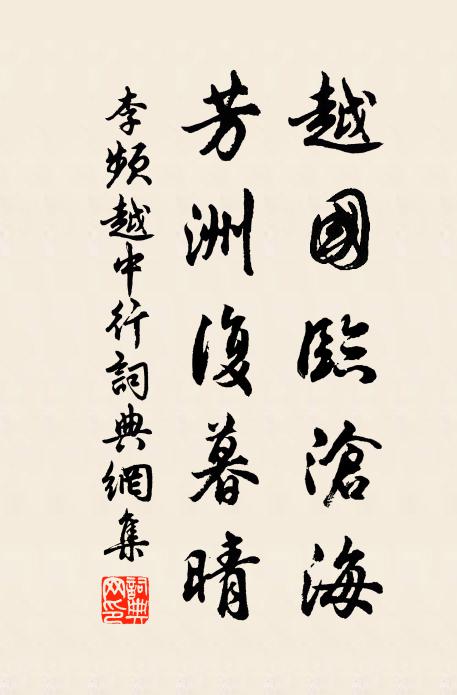 越國臨滄海
芳洲復暮晴
李頻越中行詞典網集
詞典网印